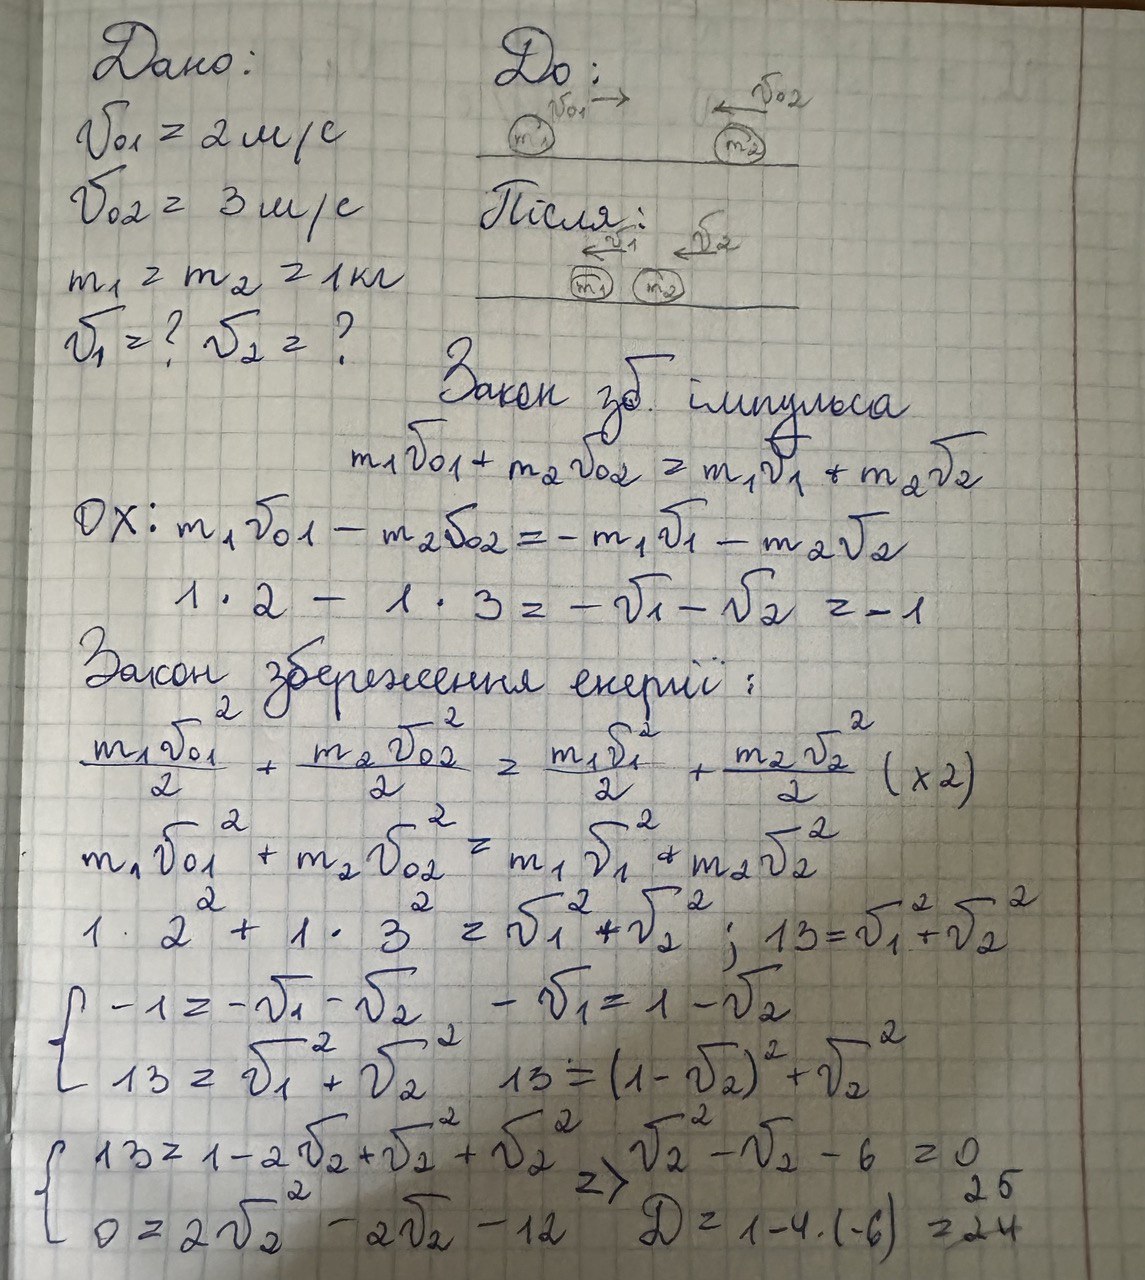 Дано:
v₀₁ = 2 м/с
v₀₂ = 3 м/с
m₁ = m₂ = 1 кг
v₁ = ? v₂ = ?
До:
v₀₁ → ← v₀₂
m₁ m₂
Після:
← v₁ ← v₂
m₁ m₂
Закон зб. імпульса
m₁v₀₁ + m₂v₀₂ = m₁v₁ + m₂v₂
ОХ: m₁v₀₁ - m₂v₀₂ = - m₁v₁ - m₂v₂
1 · 2 - 1 · 3 = - v₁ - v₂ = -1
Закон збереження енергії:
m₁v₀₁²/2 + m₂v₀₂²/2 = m₁v₁²/2 + m₂v₂²/2 (x2)
m₁v₀₁² + m₂v₀₂² = m₁v₁² + m₂v₂²
1 · 2² + 1 · 3² = v₁² + v₂² ; 13 = v₁² + v₂²
{ -1 = -v₁ - v₂ - v₁ = 1 - v₂
13 = v₁² + v₂² 13 = (1 - v₂)² + v₂²
{ 13 = 1 - 2v₂ + v₂² + v₂² => v₂² - v₂ - 6 = 0
0 = 2v₂² - 2v₂ - 12 D = 1 - 4 · (-6) = 25